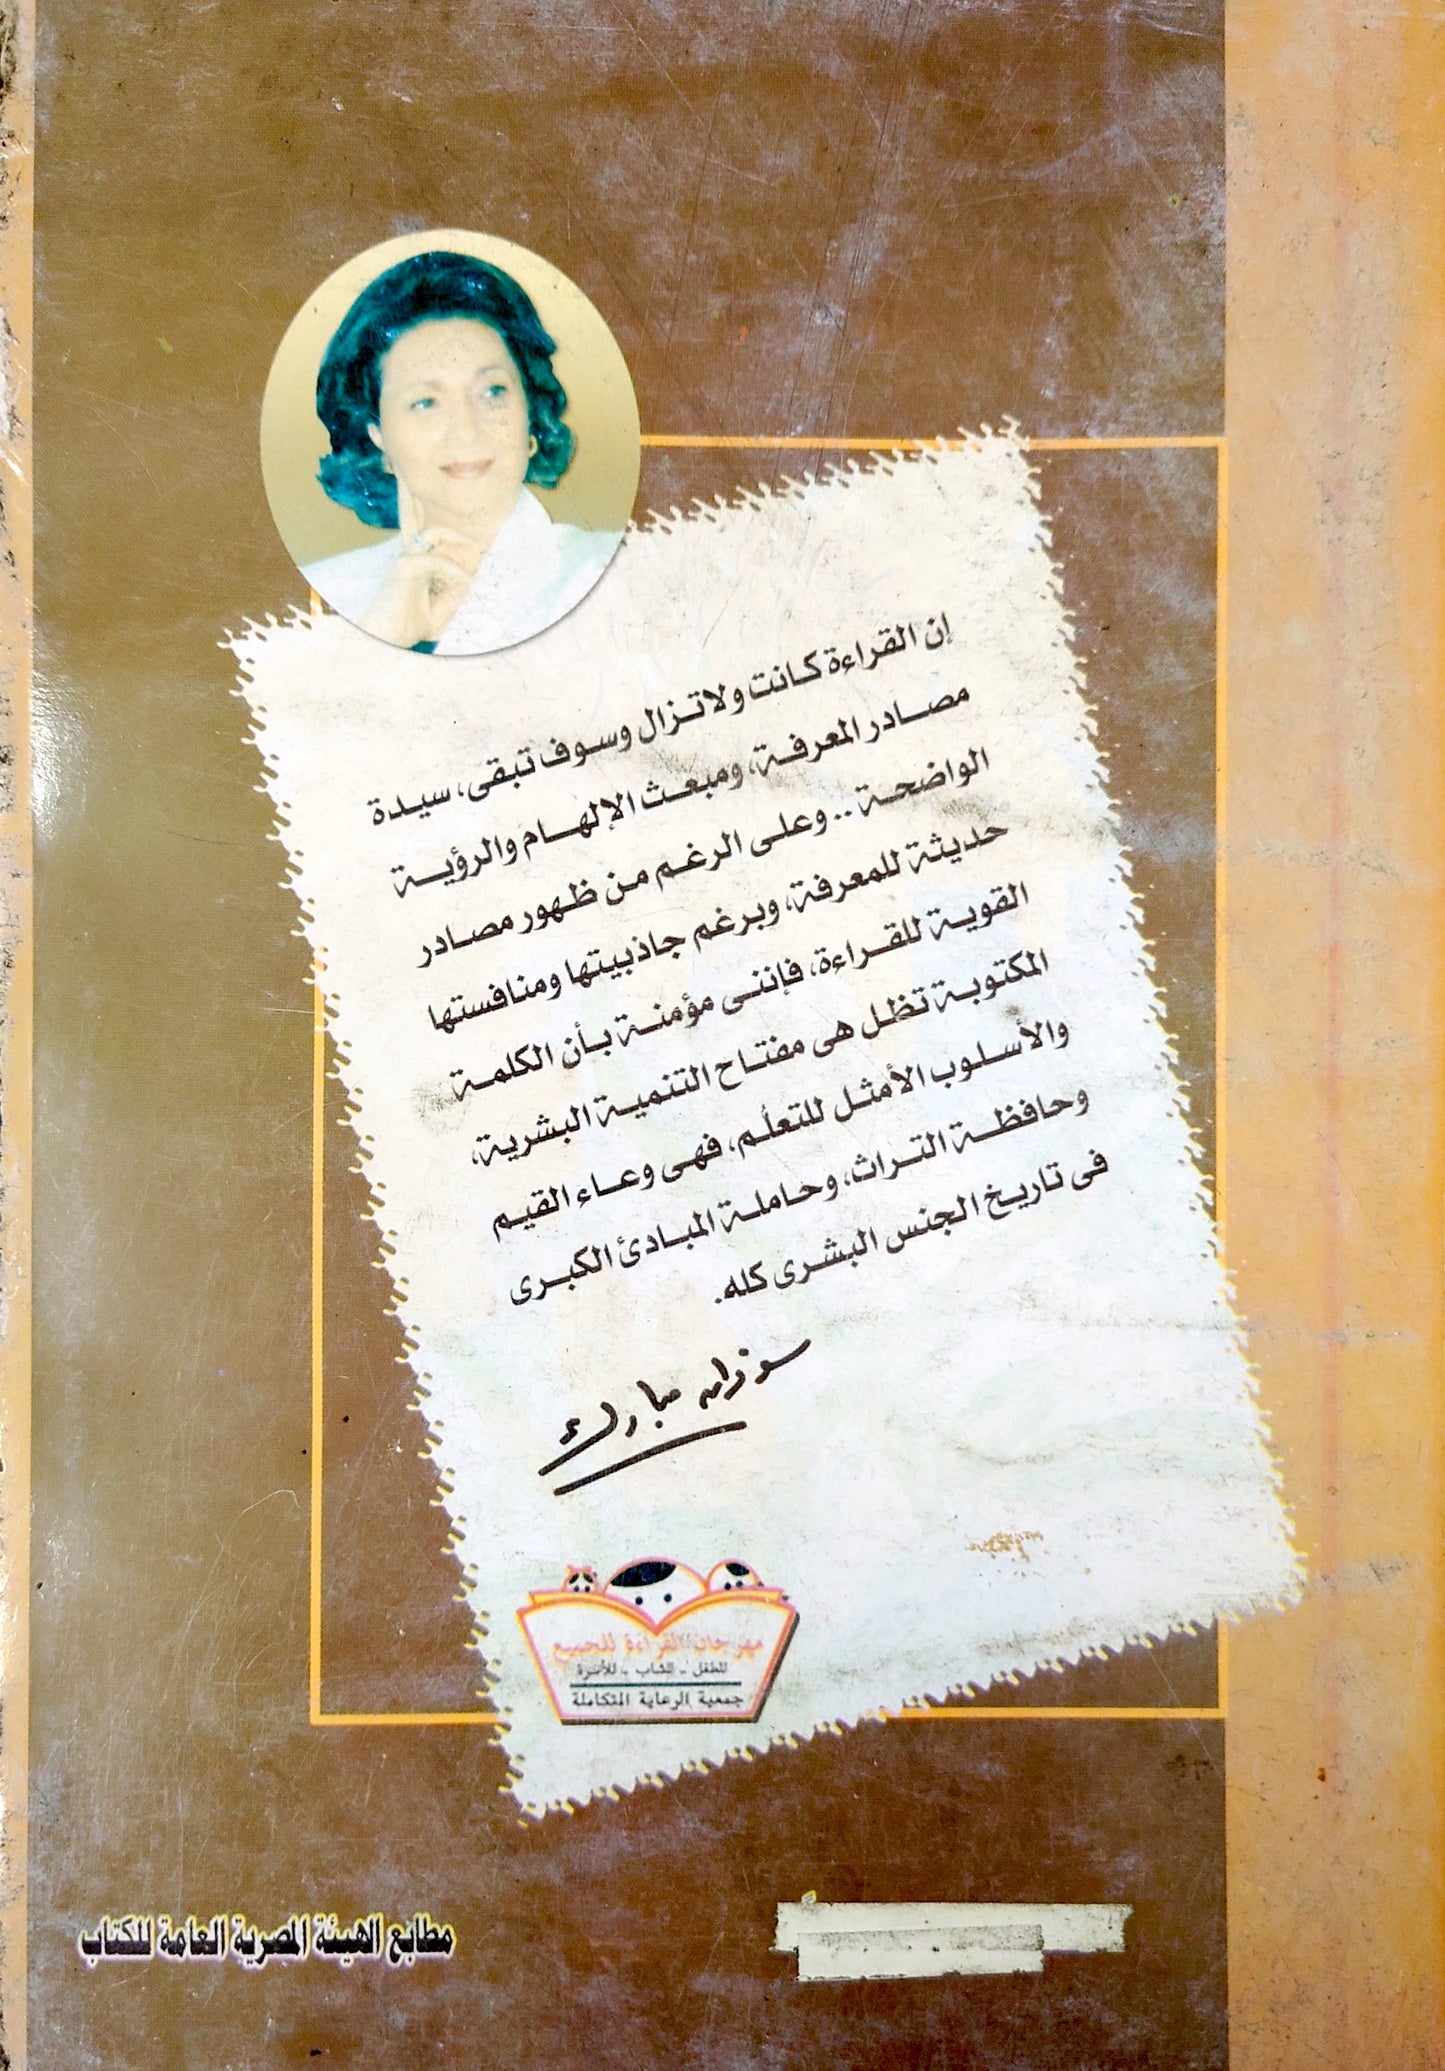 إن القراءة كانت ولاتزال وسوف تبقى، سيدة
مصادر المعرفة، ومبعث الإلهام والرؤية
الواضحة.. وعلى الرغم من ظهور مصادر
حديثة للمعرفة، وبرغم جاذبيتها ومنافستها
القوية للقراءة، فإننى مؤمنة بأن الكلمة
المكتوبة تظل هى مفتاح التنمية البشرية،
والأسلوب الأمثل للتعلُم، فهى وعاء القيم
وحافظة التراث، وحاملة المبادئ الكبرى
فى تاريخ الجنس البشرى كله.
سوزان مبارك
مهرجان القراءة للجميع
للطفل - للشاب - للأسرة
جمعية الرعاية المتكاملة
مطابع الهيئة المصرية العامة للكتاب